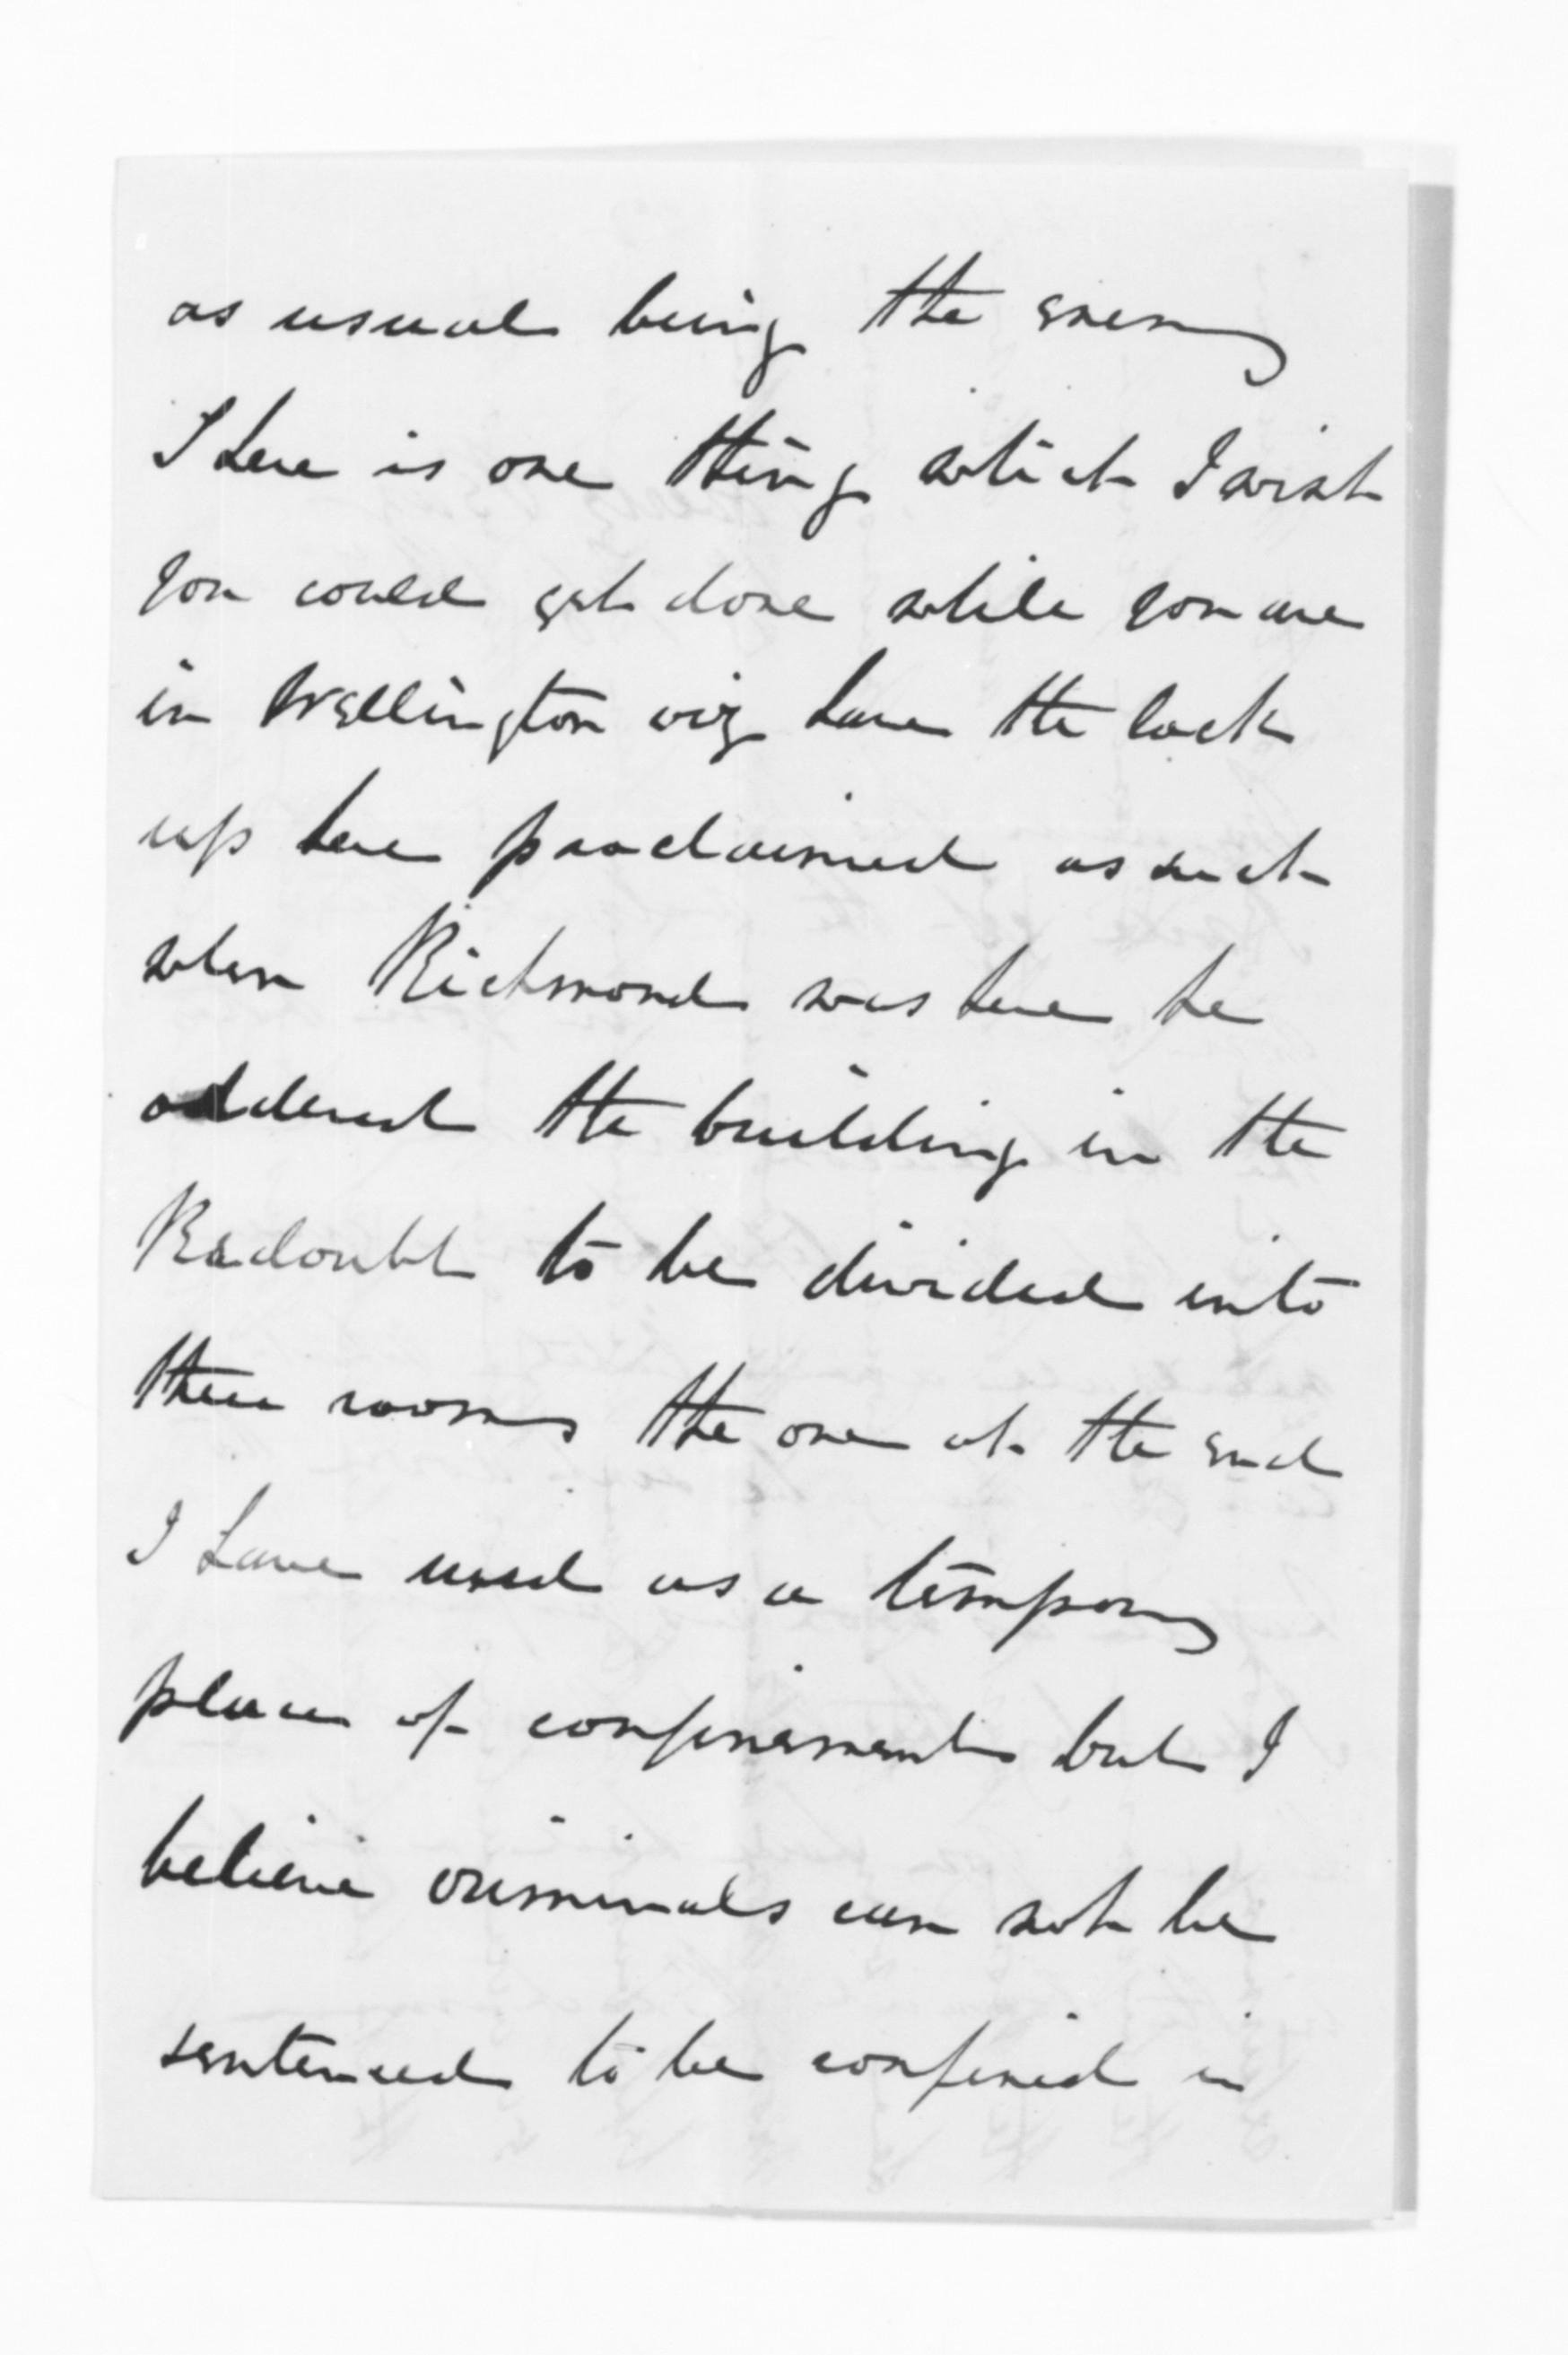 as usual being the enemy
There is one thing which I wish
you could get done while you are
in Wellington viz have the lock
up here proclaimed as such
when Richmond was here he
ordered the building in the
Redoubt to be divided into
three rooms the one at the end
I have used as a tempory
place of confinement but I
believe criminals can not be
sentenced to be confined in